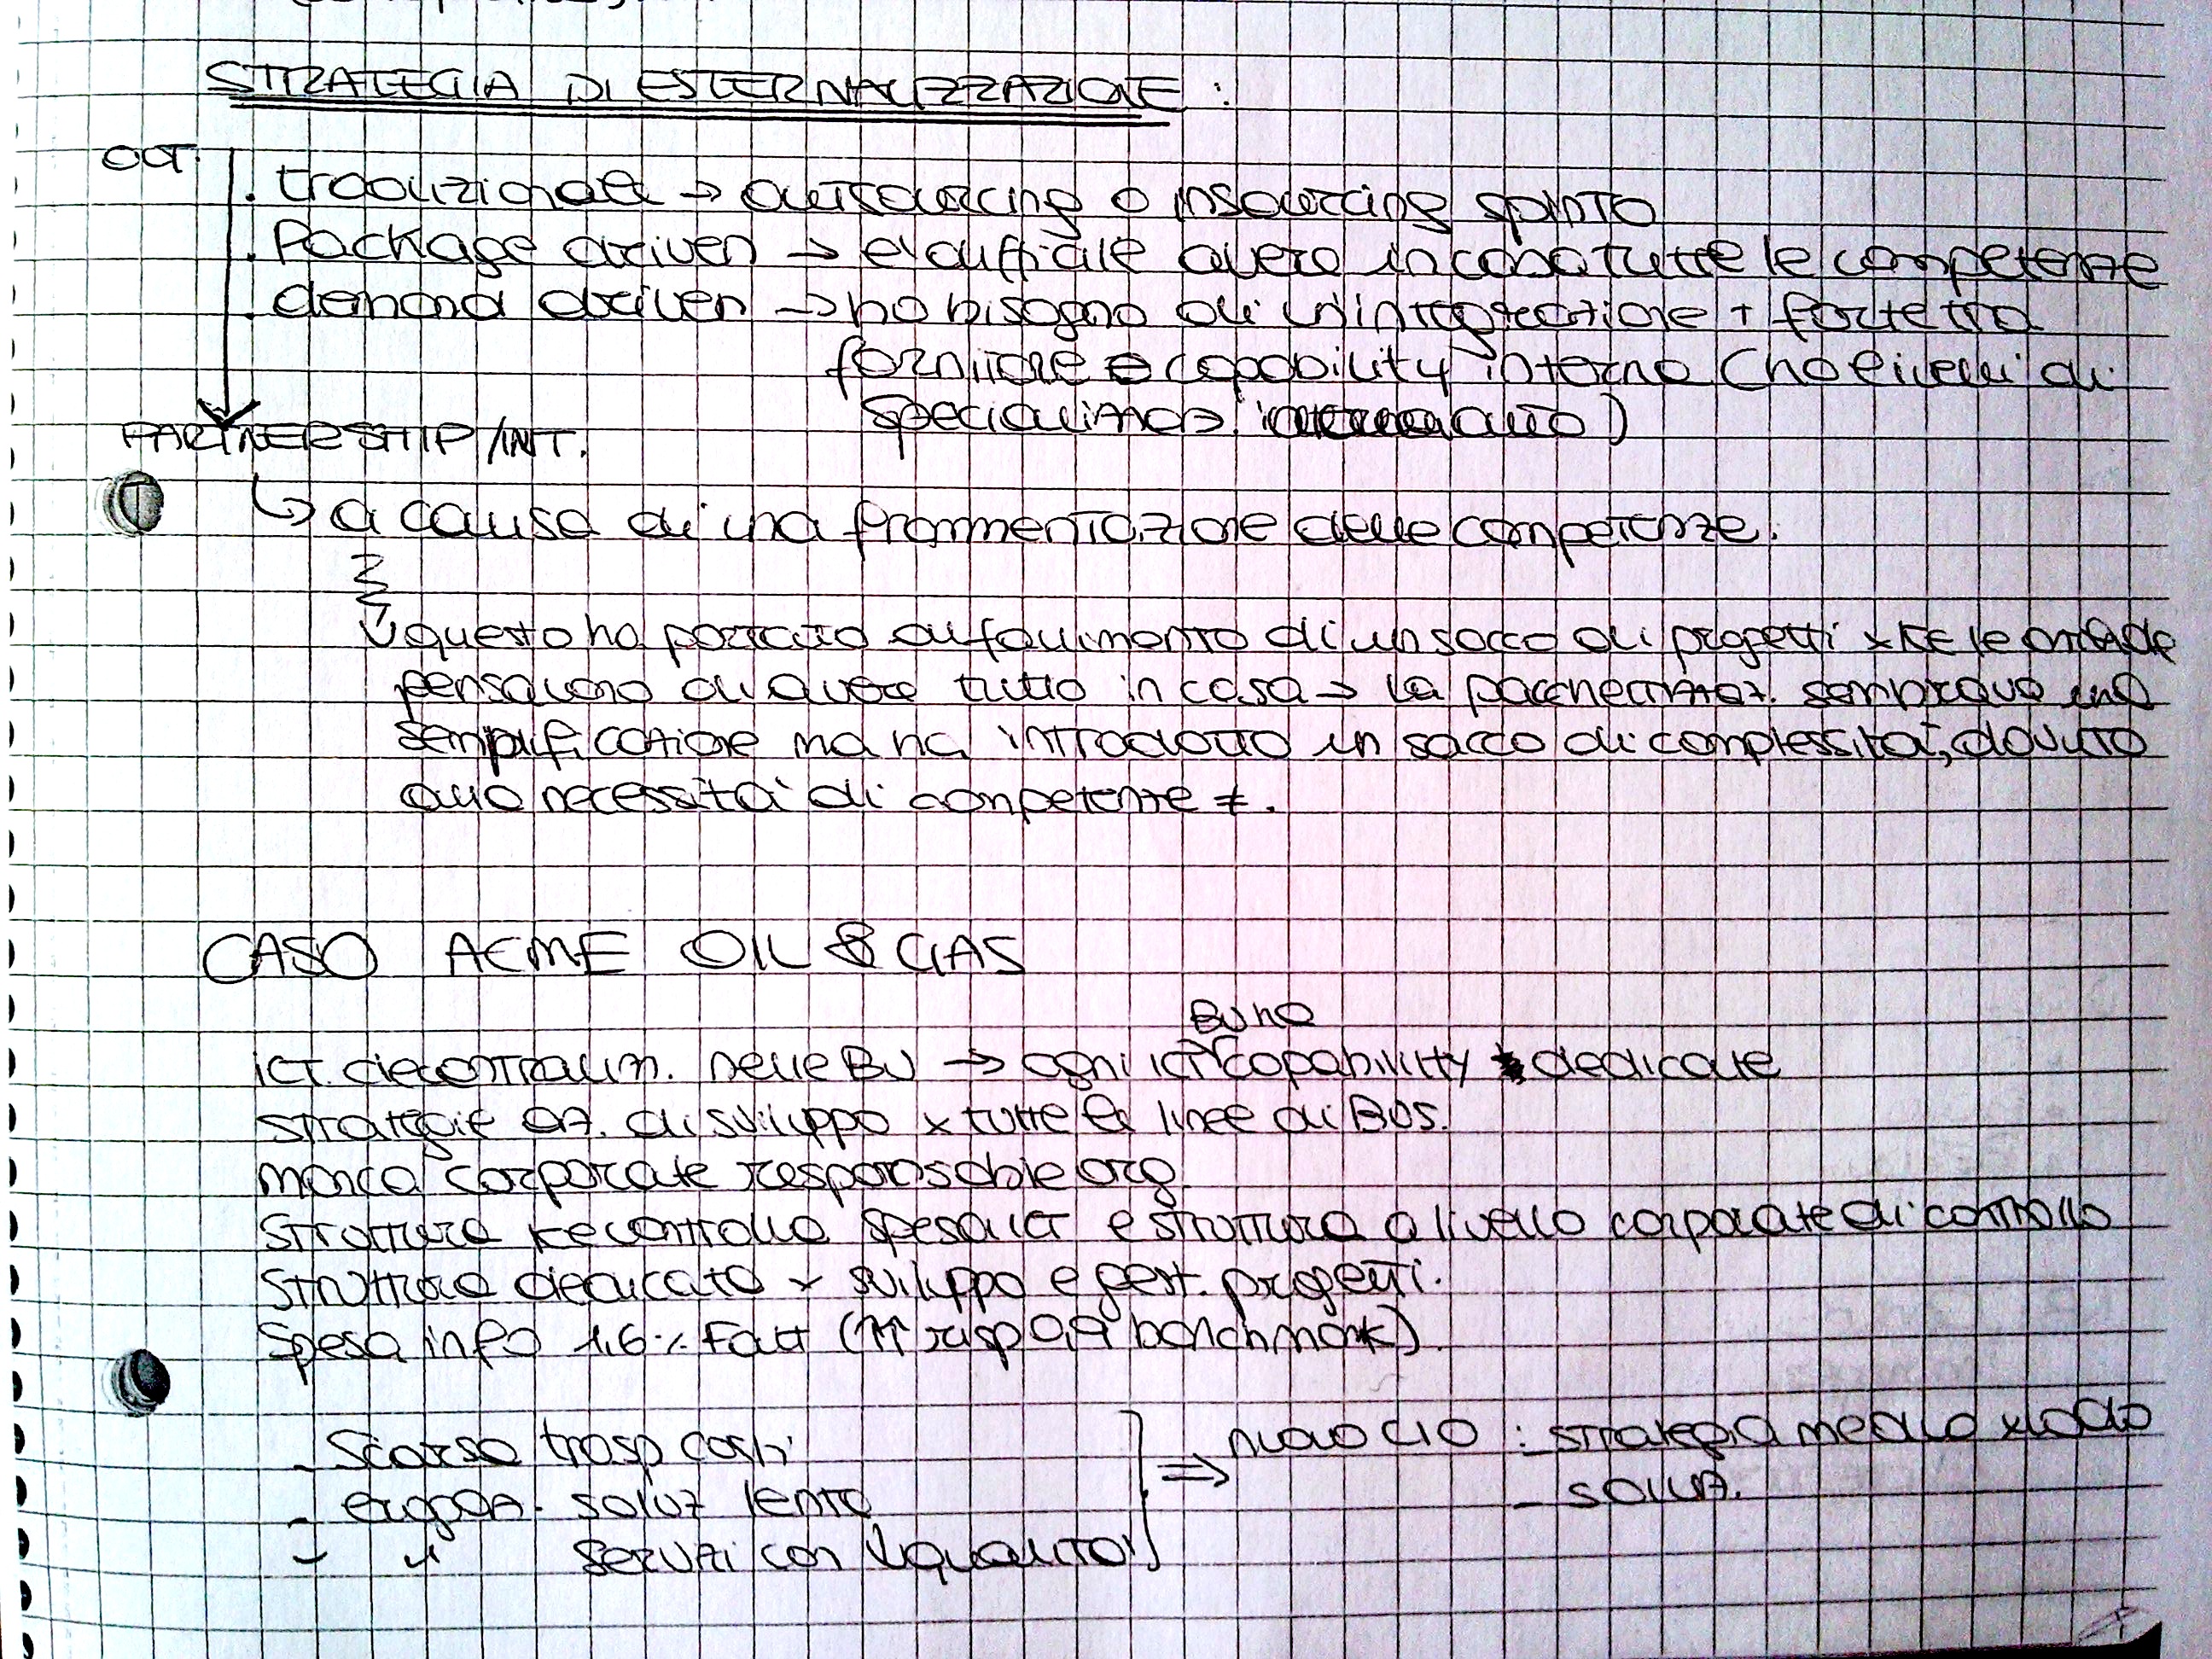 STRATEGIA DI ESTERNALIZZAZIONE :
OUT.
. tradizionale → outsourcing o insourcing spinto
. Package driven → e' difficile avere in casa tutte le competenze
. demand driven → ho bisogno di un'integrazione + forte tra
fornitore e capability interna (ho livelli di
specializzaz. alto)
PARTNERSHIP/INT.
↳ a causa di una frammentazione delle competenze.
questo ha portato al fallimento di un sacco di progetti xke le aziende
pensavano di avere tutto in casa → la pacchettizzaz. sembrava una
semplificazione ma ha introdotto un sacco di complessità, dovuto
alla necessità di competenze ≠.
CASO ACME OIL & GAS
BU ha
ICT decentraliz. nelle BU → ogni ICT capability dedicate
strategie az. di sviluppo x tutte le linee di BUS.
manca corporate responsabile org.
struttura ke controlla spesa ICT e struttura a livello corporate di controllo
struttura dedicata x sviluppo e gest. progetti.
Spesa info 1,6% Fatt (↑↑ risp 0,9 benchmark).
- Scarsa trasp costi
- erogaz. soluz lenta
- " servizi con ↓ qualità
⇒ nuovo CIO : - strategia medio x lodo
-